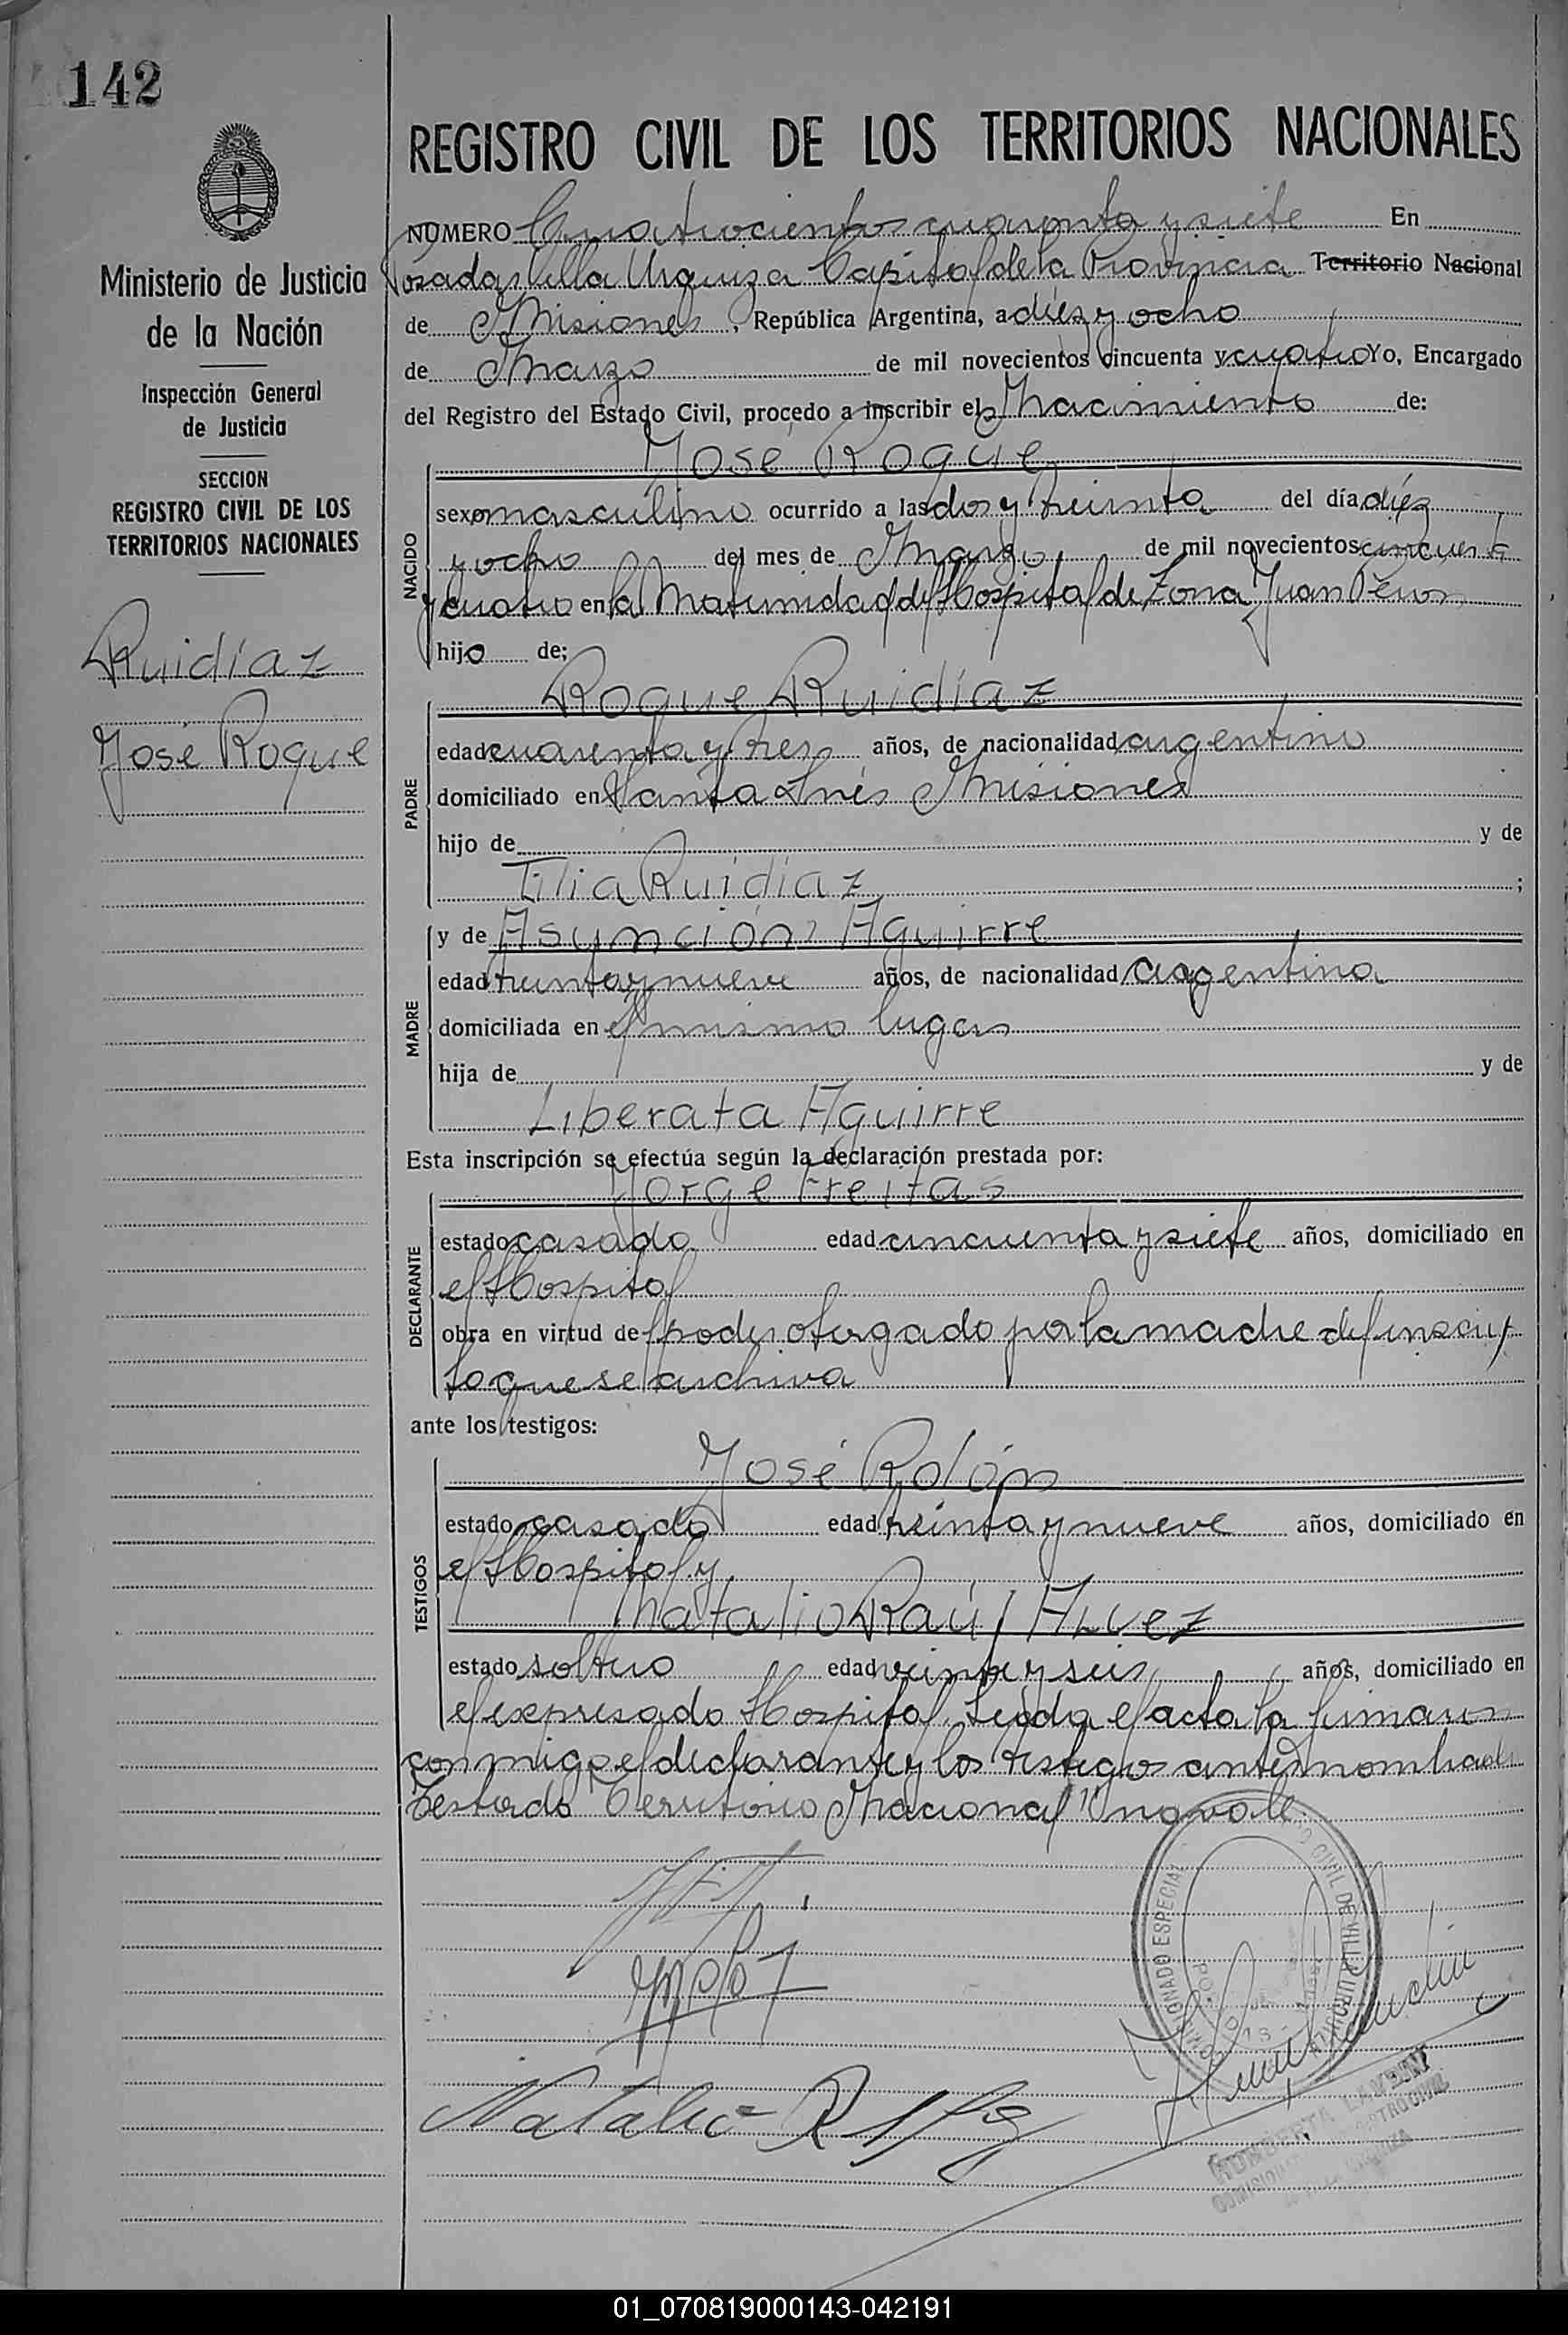 142
REGISTRO CIVIL DE LOS TERRITORIOS NACIONALES
Ministerio de Justicia
de la Nación
Inspección General
de Justicia
SECCION
REGISTRO CIVIL DE LOS
TERRITORIOS NACIONALES
Ruidíaz
José Roque
NUMERO Cuatrocientos cuarenta y siete En
Posadas Villa Urquiza Capital de la Provincia Territorio Nacional
de Misiones, República Argentina, a diez y ocho
de Marzo de mil novecientos cincuenta y cuatro Yo, Encargado
del Registro del Estado Civil, procedo a inscribir el Nacimiento de:
José Roque
NACIDO
sexo masculino ocurrido a las dos y treinta del día diez
y ocho del mes de Marzo de mil novecientos cincuenta
y cuatro en la Maternidad del Hospital de Zona Juan Perón
hijo de:
Roque Ruidíaz
PADRE
edad cuarenta y tres años, de nacionalidad argentino
domiciliado en Santa Inés Misiones
hijo de y de
Ruidíaz ;
MADRE
y de Asunción Aguirre
edad treinta y nueve años, de nacionalidad argentina
domiciliada en el mismo lugar
hija de y de
Liberata Aguirre
Esta inscripción se efectúa según la declaración prestada por:
Jorge Freitas
DECLARANTE
estado casado edad cincuenta y siete años, domiciliado en
el Hospital
obra en virtud de poder otorgado por la madre del inscrip
to que se archiva
ante los testigos:
José Rolón
TESTIGOS
estado casado edad treinta y nueve años, domiciliado en
el Hospital y
Natalio Raúl
estado soltero edad veinte y seis años, domiciliado en
el expresado Hospital. Leída el acta la firmaron
conmigo el declarante y los testigos antes nombrados
Testado "Territorio Nacional" no vale.
Natalio R
COMISIONADO ESPECIAL
CIVIL DE VILLA URQUIZA
01_070819000143-042191